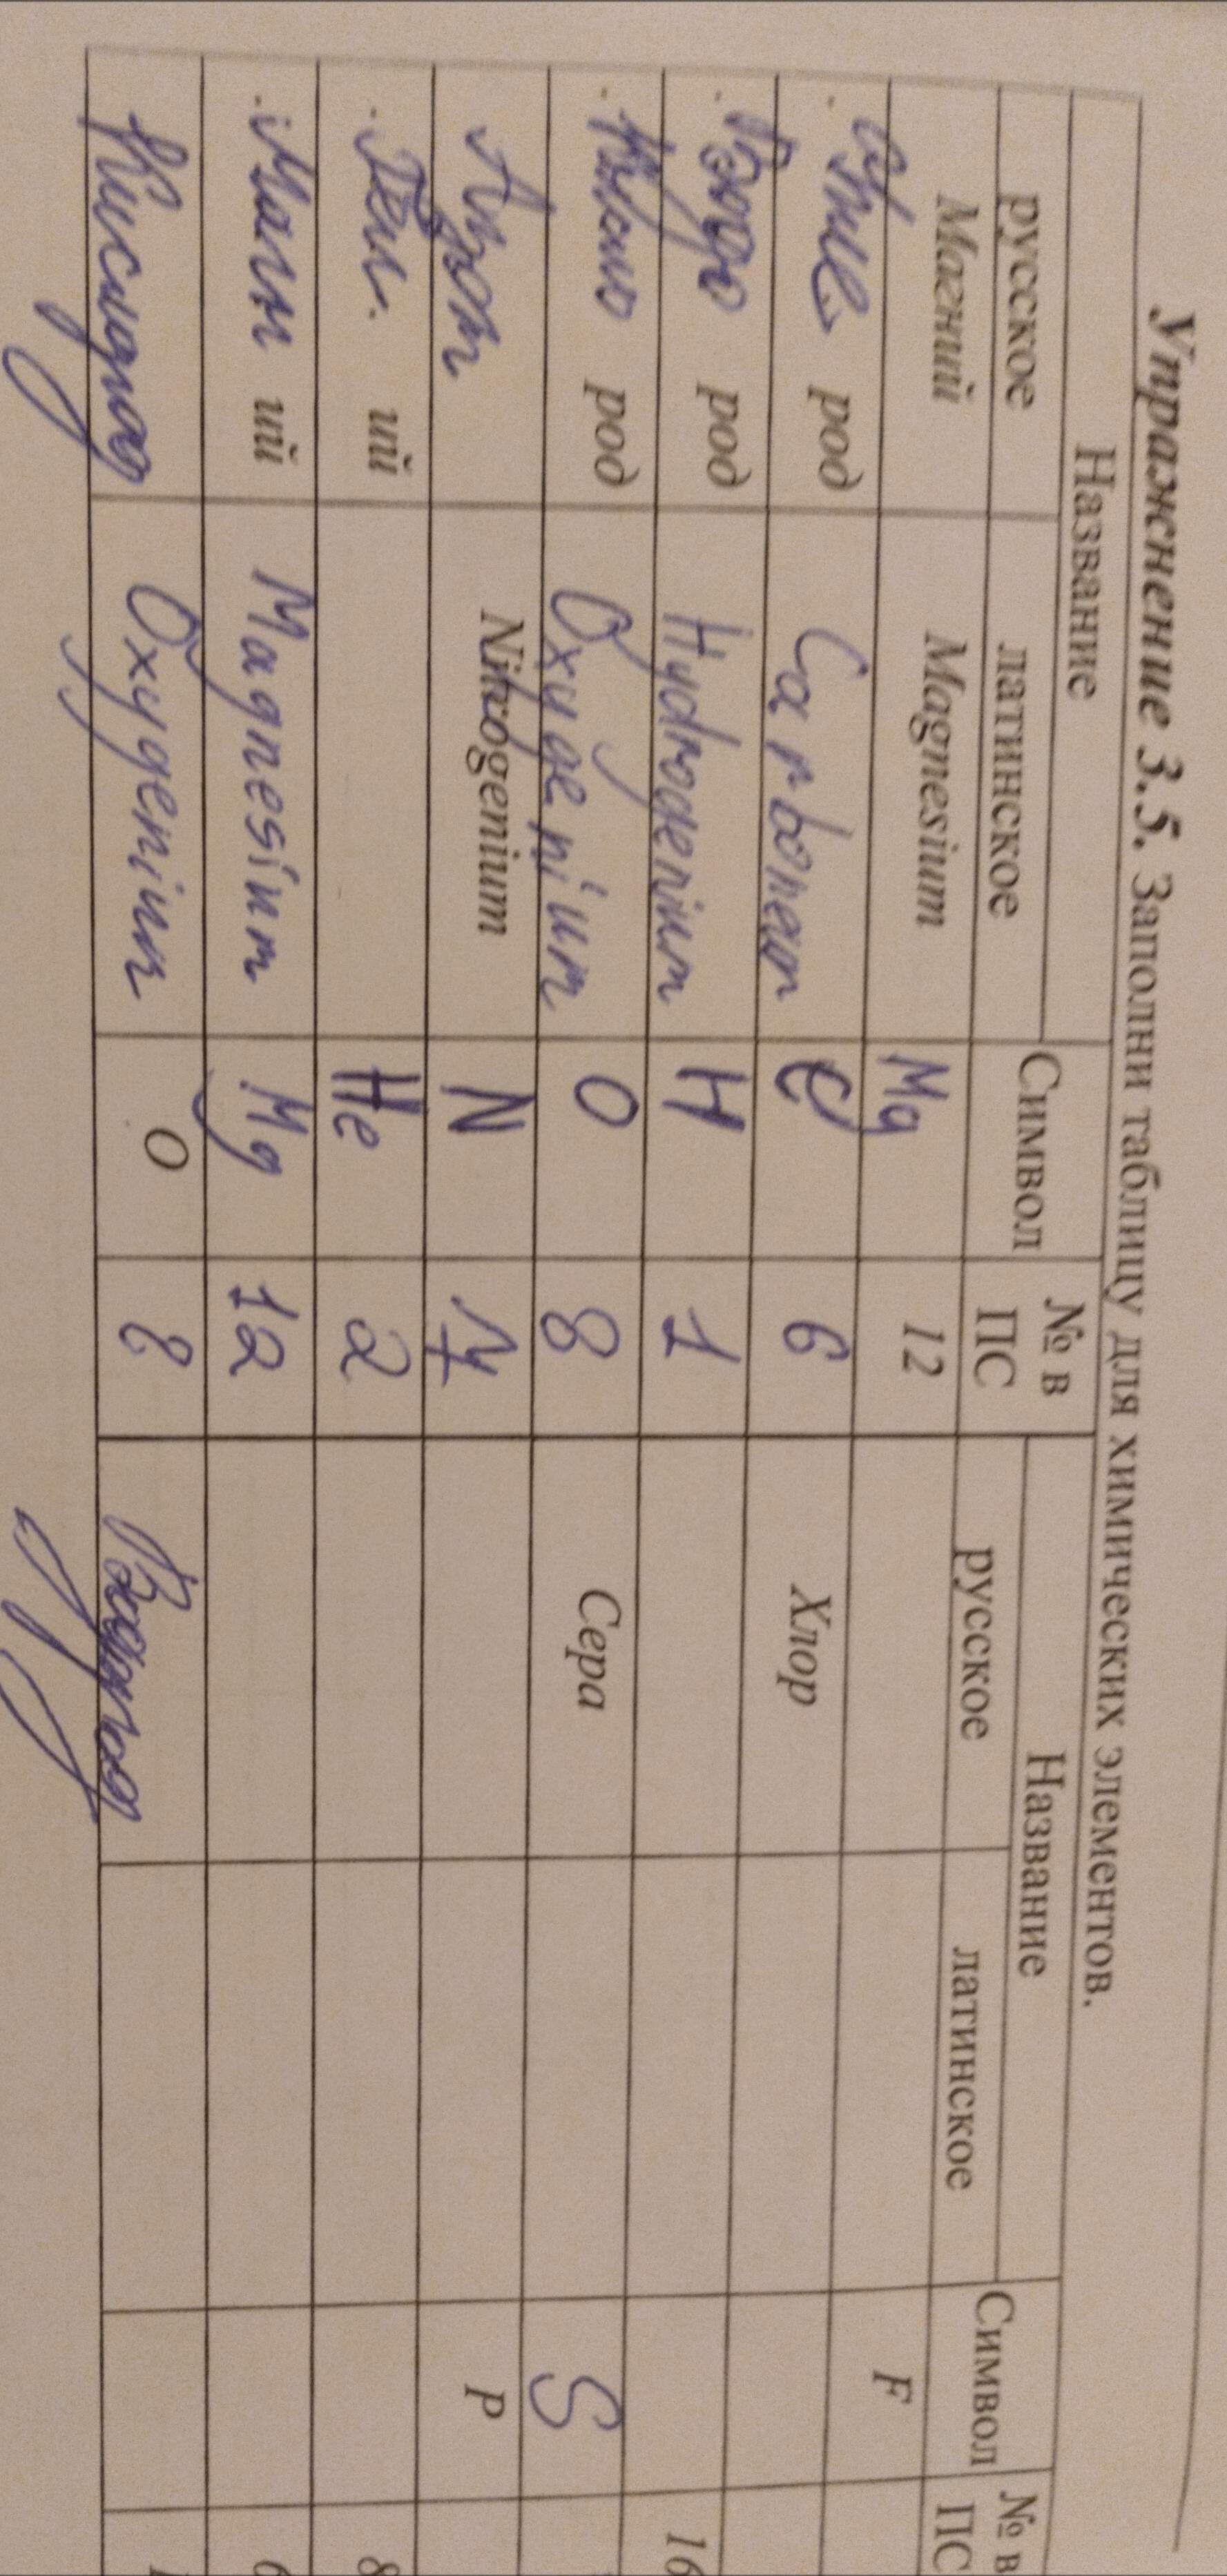 Упражнение 3.5. Заполни таблицу для химических элементов.
Название Символ № в ПС Название Символ № в ПС
русское латинское русское латинское
Магний Magnesium Mg 12 F
Угле род Carboneum C 6 Хлор
Водо род Hydrogenium H 1 16
Кисло род Oxygenium O 8 Сера S
Азот Nitrogenium N 7 P
Гел ий He 2 8
Магн ий Magnesium Mg 12 6
Кислород Oxygenium O 8 Водород